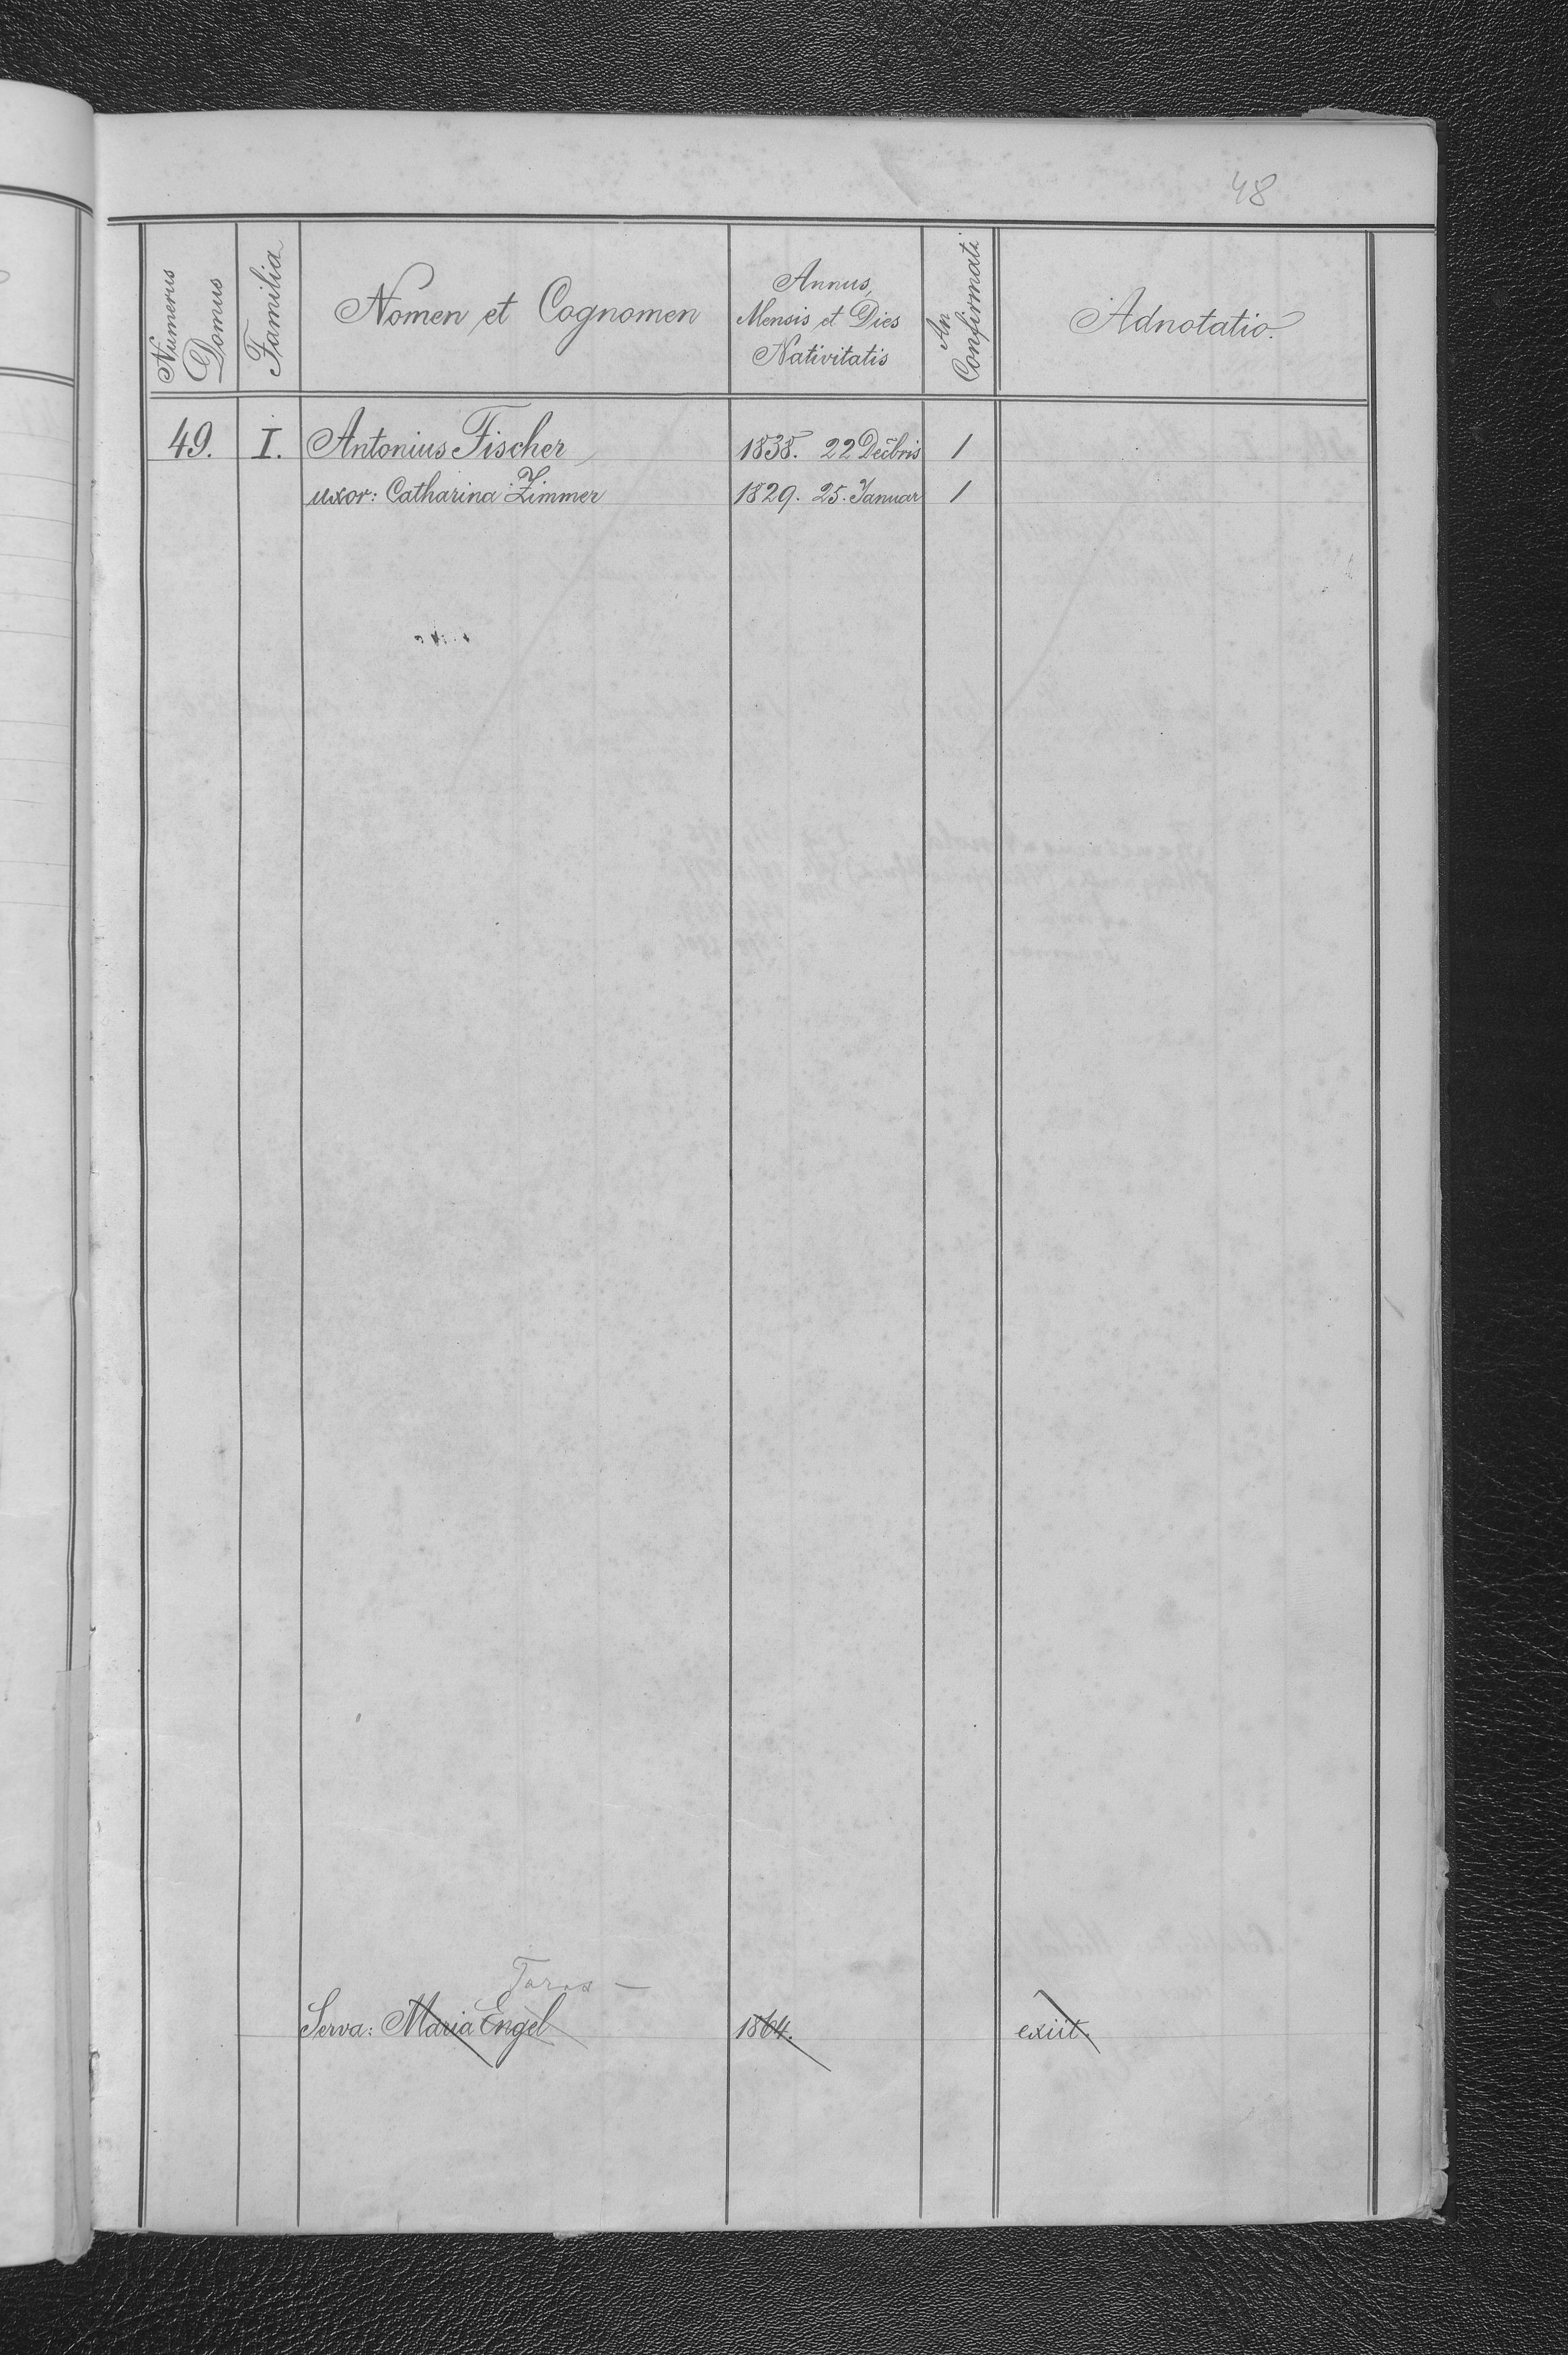 48
Numerus Domus
Familia
Nomen et Cognomen
Annus,
Mensis et Dies
Nativitatis
An Confirmati
Adnotatio.
49. I. Antonius Fischer 1838. 22 Decbris 1
uxor: Catharina Zimmer 1829. 25. Januar 1
Serva: Maria Engel 1864. exiit.